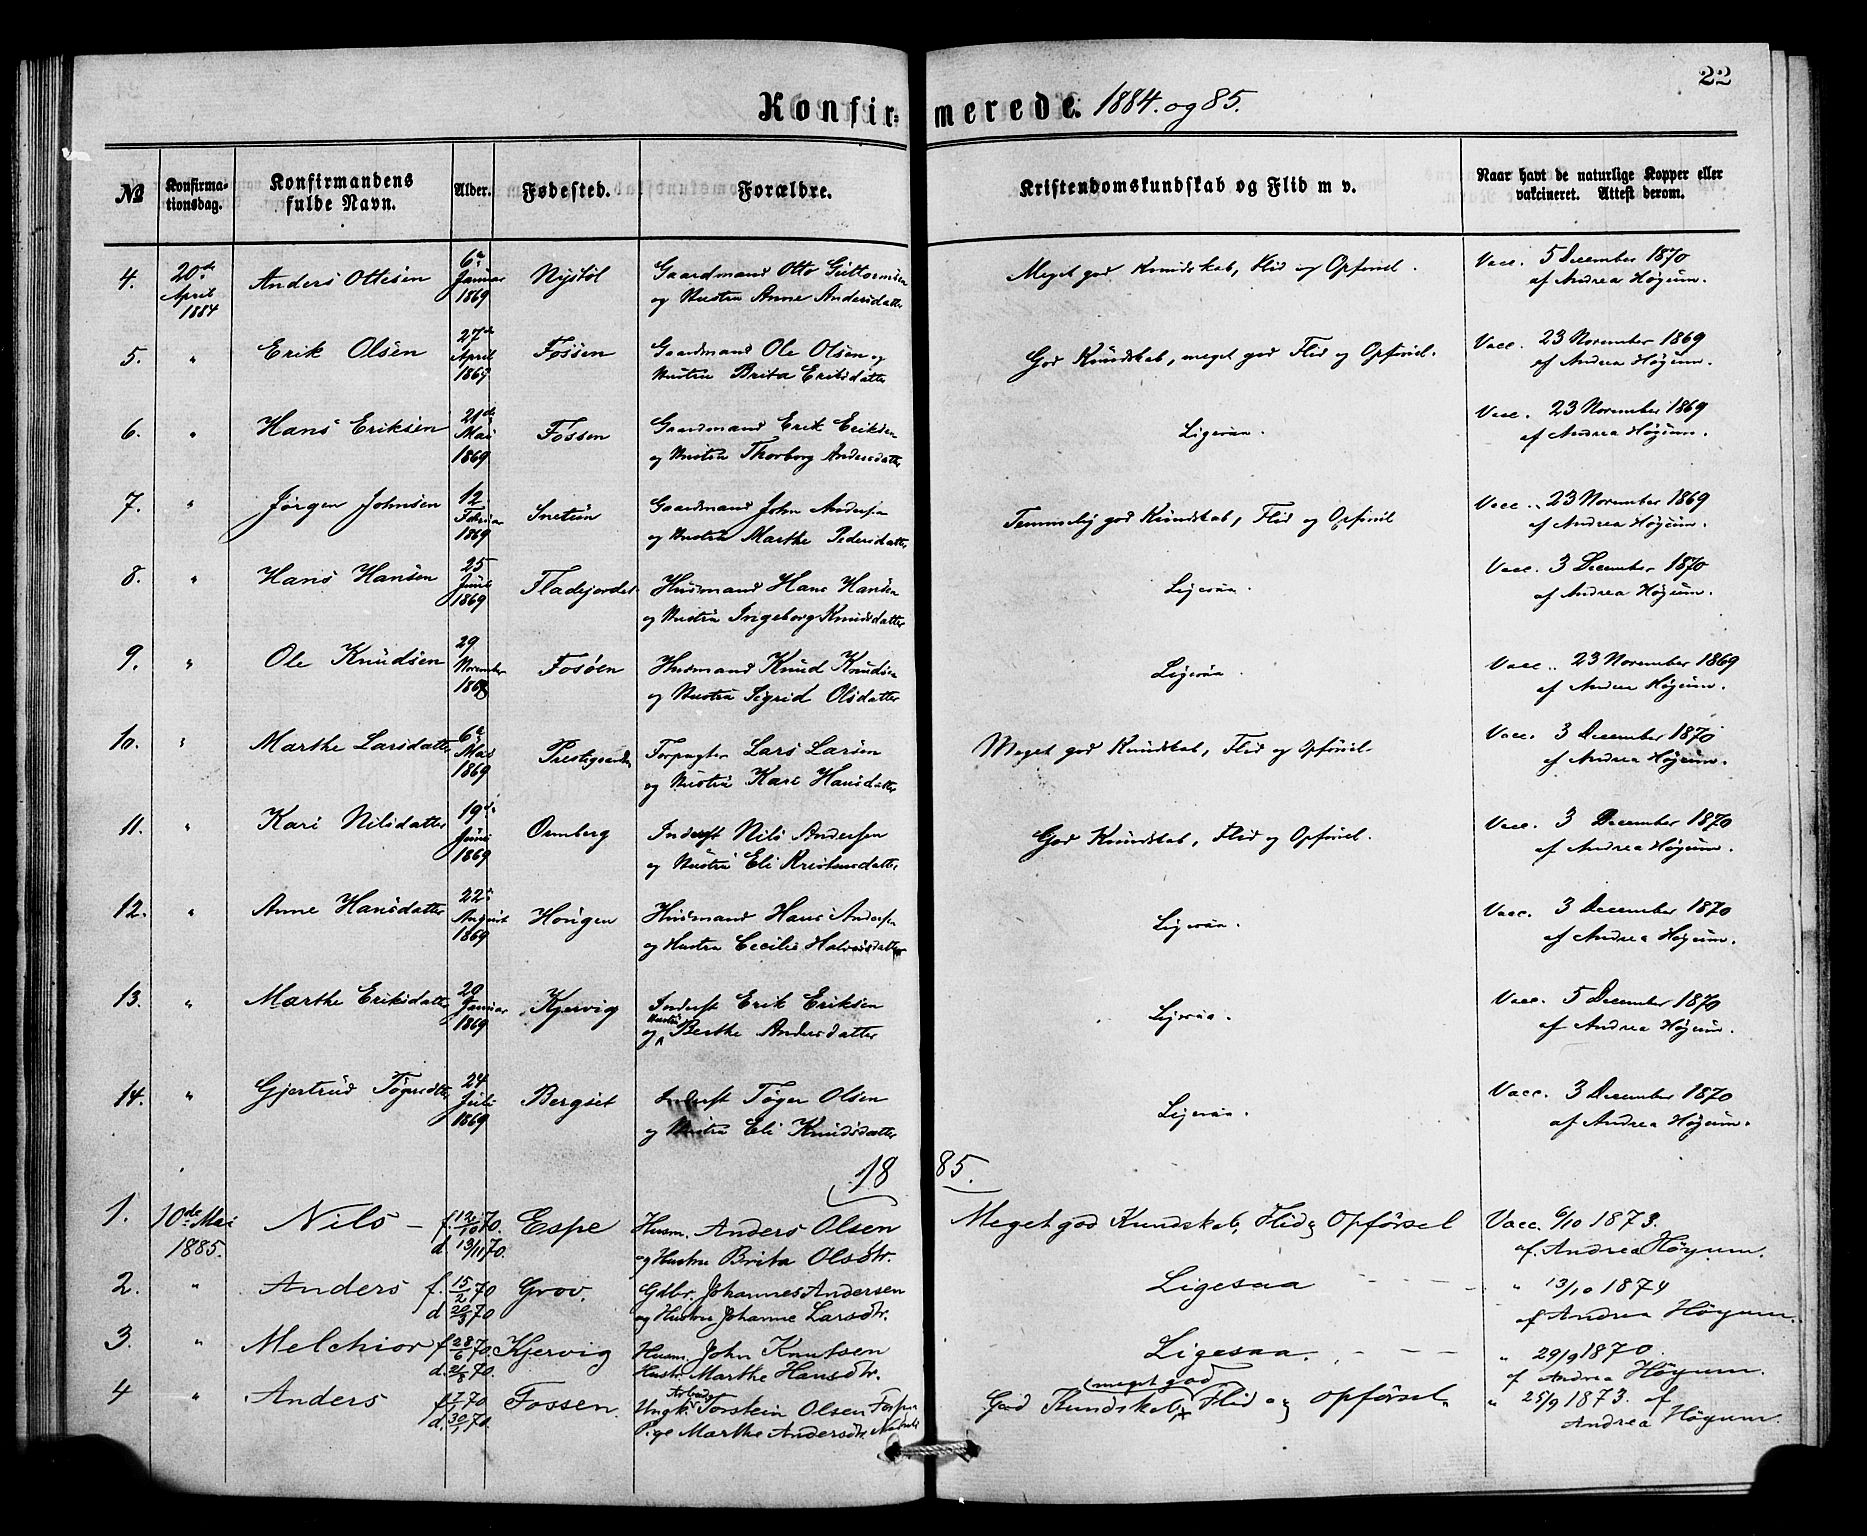 22
Konfirmerede. 1884. og 85.
No Konfirmationsdag. Konfirmandens fulde Navn. Alder. Fødested. Forældre. Kristendomskundskab og Flid m v. Naar havt de naturlige Kopper eller vakcineret. Attest derom.
4. 20de April 1884 Anders Ottesen 6te Januar 1869 Nystøl Gaardmand Otto Guttormsen Meget god Kundskab, Flid og Opførsel. Vacc. 5 December 1870
og Hustru Anne Andersdatter af Andrea Høyum.
5. " Erik Olsen 27de April 1869 Fossen Gaardmand Ole Olsen og God Kundskab, meget god Flid og Opførsel. Vacc. 23 November 1869
Hustru Brita Eriksdatter af Andrea Høyum.
6. " Hans Eriksen 21de Mai 1869 Fossen Gaardmand Erik Eriksen Ligesaa. Vacc. 23 November 1869
og Hustru Thorborg Andersdatter af Andrea Høyum.
7. " Jørgen Johnsen 12 Februar 1869 Gaardmand John Andersen Temmelig god Kundskab, Flid og Opførsel Vacc. 23 November 1869
og Hustru Marthe Pedersdatter af Andrea Høyum.
8. " Hans Hansen 25 1869 Fladejordet Husmand Hans Hansen Ligesaa. Vacc. 3 December 1870
og Hustru Ingeborg Knudsdatter af Andrea Høyum.
9. " Ole Knudsen 29 November 1868 Fosøen Husmand Knud Knudsen Ligesaa. Vacc. 23 November 1869
og Hustru Sigrid Olsdatter af Andrea Høyum.
10. " Marthe Larsdatter 6te Mai 1869 Forpagter Lars Larsen Meget god Kundskab, Flid og Opførsel. Vacc. 3 December 1870
og Hustru Kari Hansdatter af Andrea Høyum.
11. " Kari Nilsdatter 19de 1869 Ormberg Inderst Nils Andersen God Kundskab, Flid og Opførsel. Vacc. 3 December 1870
og Hustru Eli Kristensdatter af Andrea Høyum.
12. " Anne Hansdatter 22de August 1869 Husmand Hans Andersen Ligesaa. Vacc. 3 December 1870
og Hustru Cecilie Halvorsdatter af Andrea Høyum.
13. " Marthe Eriksdatter 20 Januar 1869 Kjervig Inderst Erik Eriksen Ligesaa. Vacc. 5 December 1870
og Hustru Berthe Andersdatter af Andrea Høyum.
14. " Gjertrud 24 Juli 1869 Bergset Inderst Tøger Olsen Ligesaa. Vacc. 3 December 1870
og Hustru Eli Knudsdatter af Andrea Høyum.
1885.
1. 10de Mai 1885. Nils – f. 12/10 70. d. 13/11 70. Espe Husm. Anders Olsen Meget god Kundskab, Flid og Opførsel Vacc. 6/10 1873.
og Hustru Brita Olsdtr. af Andrea Høyum.
2. " Anders f. 15/2 70 d. 20/3 70 Grov. Gdbr. Johannes Andersen Ligesaa " 13/10 1874
og Hustru Johanne Larsdtr. af Andrea Høyum.
3. " Melchior f. 28/6 70. Kjervig Husm. John Knutsen Ligesaa. " 29/9 1870.
Hustr. Marthe Hansdtr. af Andrea Høyum.
4 " Anders Fossen. Ungk. Torstein Olsen God Kundskab, meget god Flid og Opførsel. " 25/9 1873. af
Pige Marthe Andersdtr. Andrea Høyum.